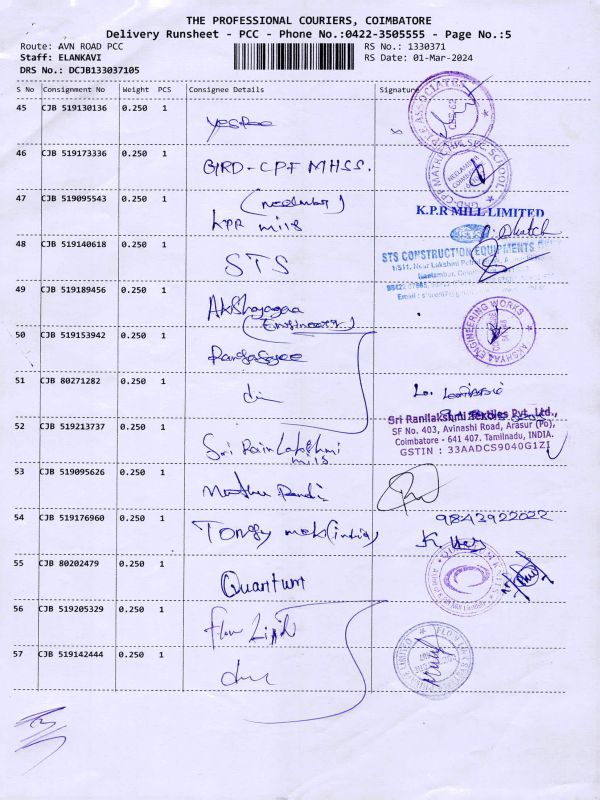 THE PROFESSIONAL COURIERS, COIMBATORE
Delivery Runsheet - PCC - Phone No.:0422-3505555 - Page No.:5
Route: AVN ROAD PCC
RS No.: 1330371
Staff: ELANKAVI
RS Date: 01-Mar-2024
DRS No.: DCJB133037105
S No Consignment No Weight PCS Consignee Details Signature
45 CJB 519130136 0.250 1
46 CJB 519173336 0.250 1
GRD-CPF MHSS.
(Neelambur)
47 CJB 519095543 0.250 1
KPR mills
K.P.R MILL LIMITED
48 CJB 519140618 0.250 1
STS
STS CONSTRUCTION EQUIPMENTS
49 CJB 519189456 0.250 1
Akshayagaa
(Engineers)
AKSHYAA ENGINEERING WORKS
50 CJB 519153942 0.250 1
51 CJB 80271282 0.250 1
52 CJB 519213737 0.250 1
Sri Rani Lakshmi
mills
Sri Ranilakshmi Textiles Pvt. Ltd.,
SF No. 403, Avinashi Road, Arasur (Po),
Coimbatore - 641 407. Tamilnadu, INDIA.
GSTIN : 33AADCS9040G1ZI
53 CJB 519095626 0.250 1
54 CJB 519176960 0.250 1
(India)
9843922022
55 CJB 80202479 0.250 1
Quantum
56 CJB 519205329 0.250 1
57 CJB 519142444 0.250 1